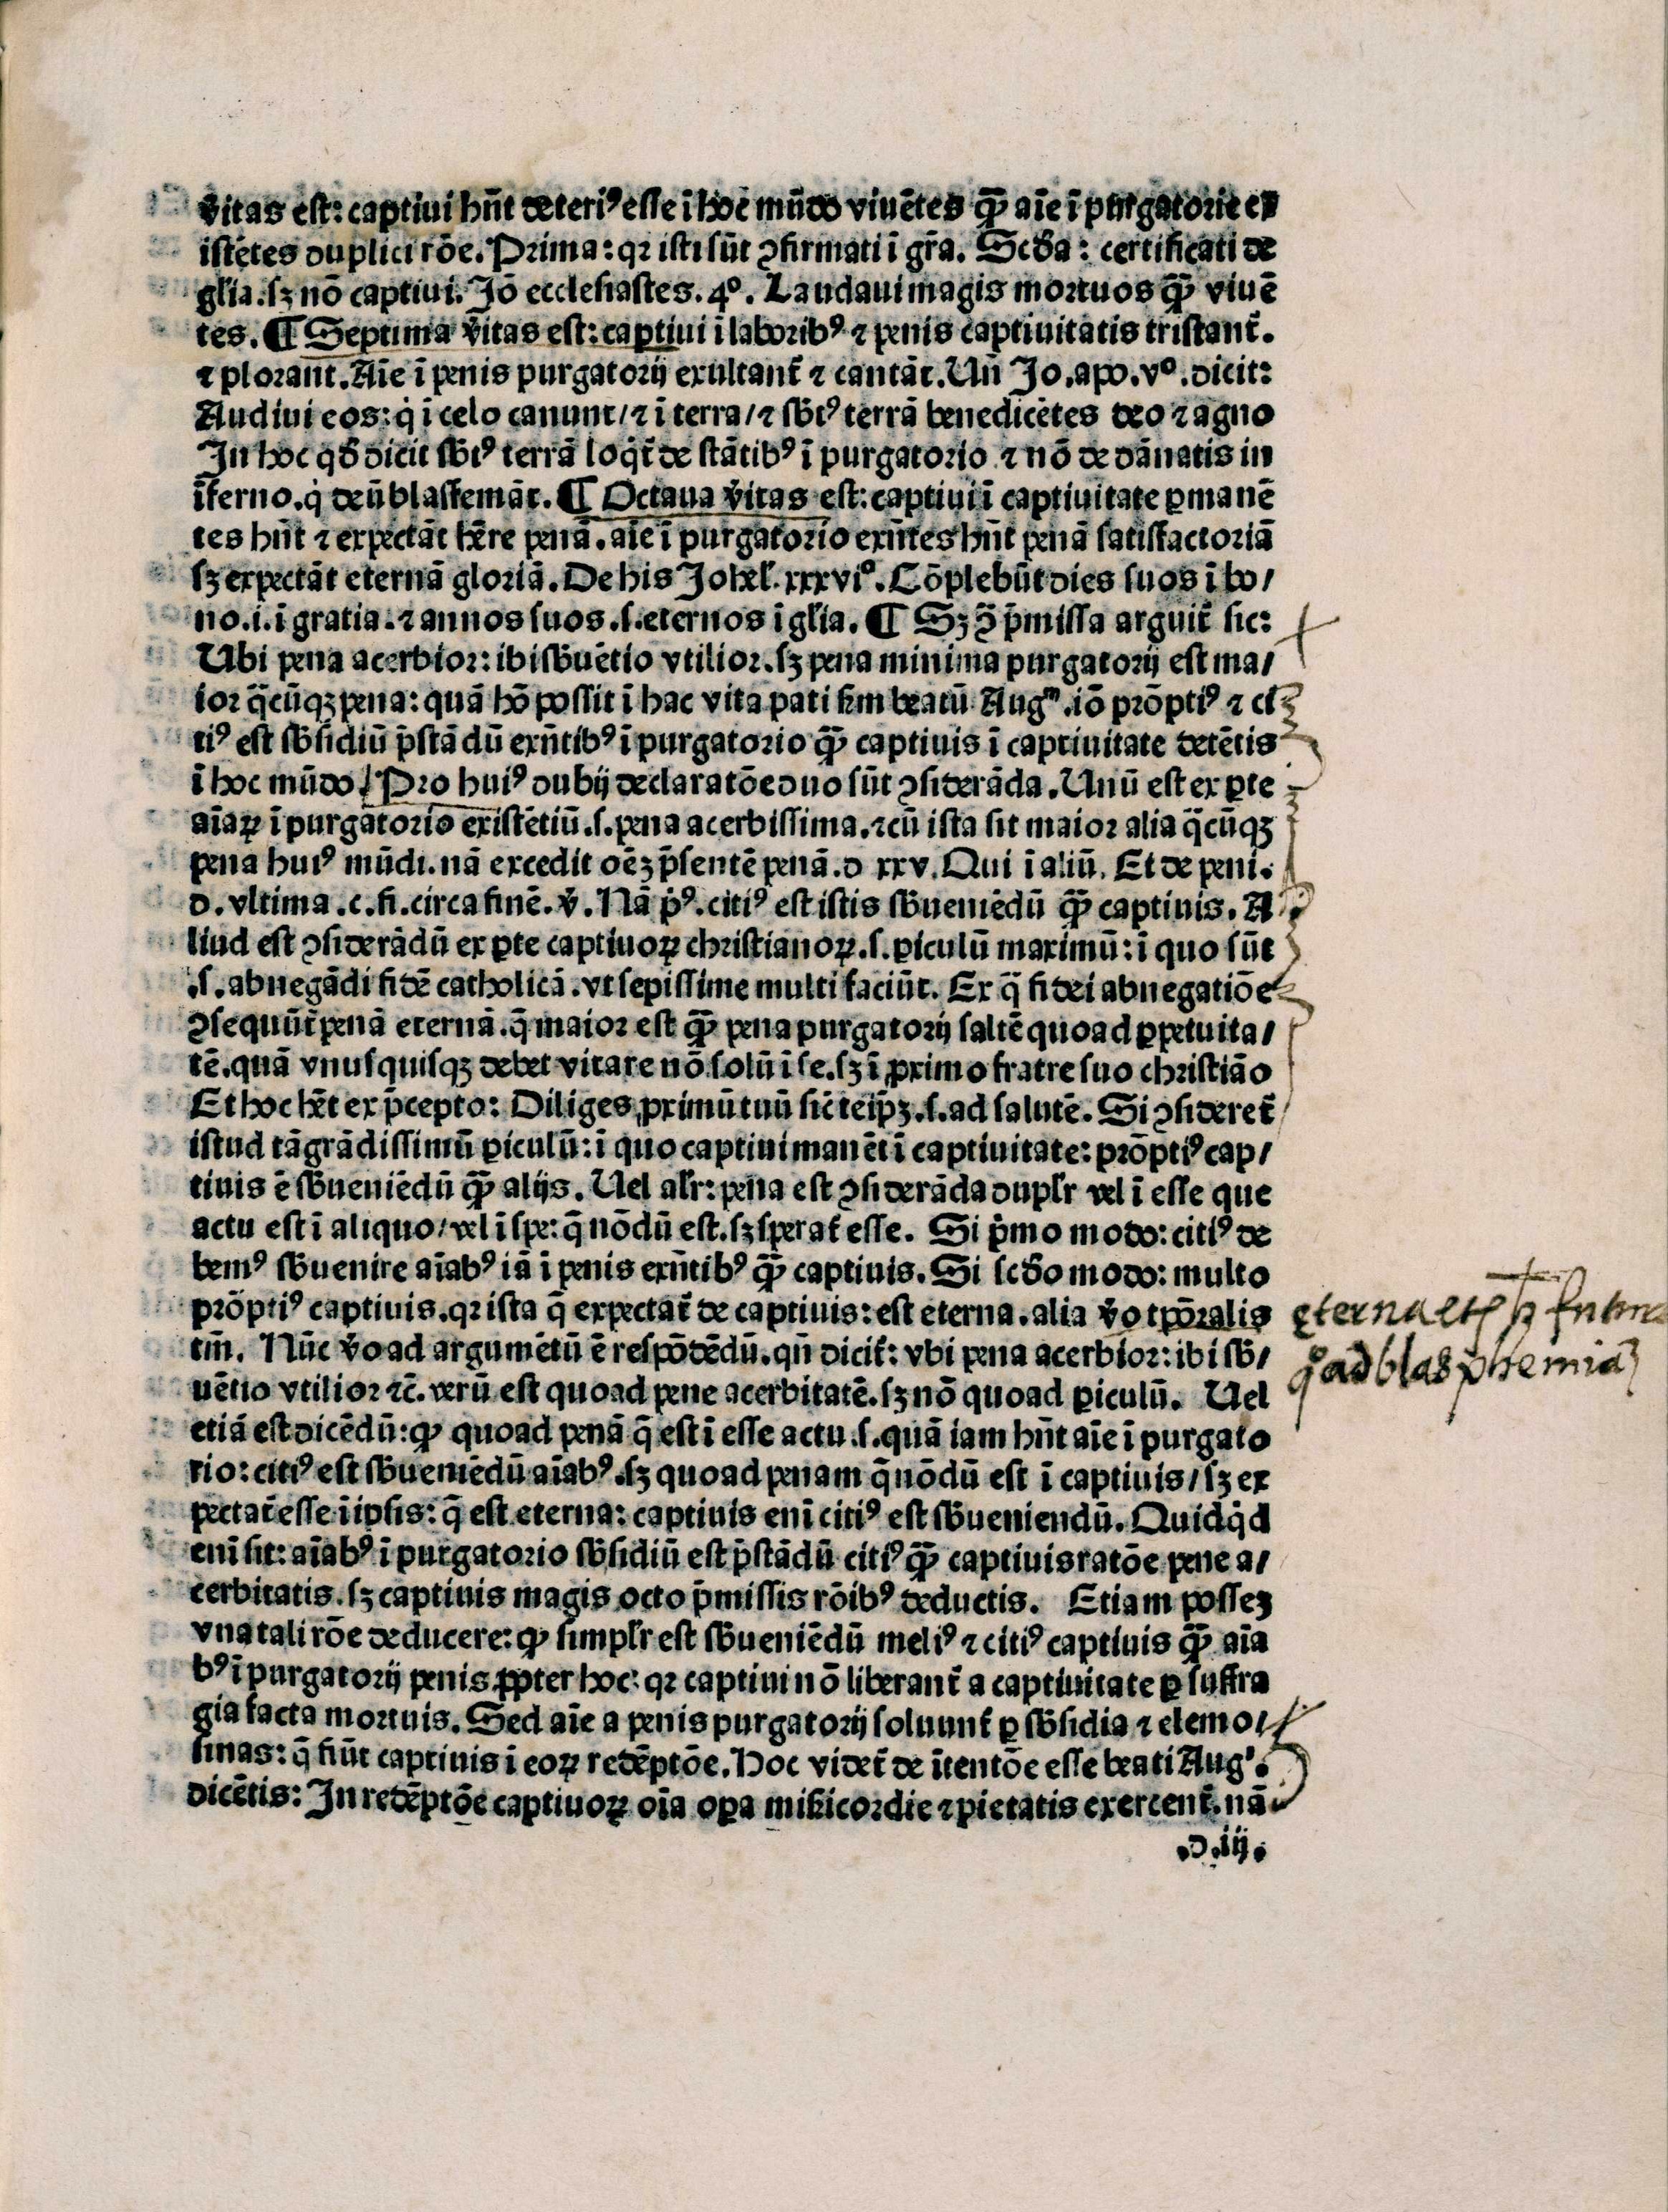 v̄itas est: captiui hn̄t deteriꝰ esse ī hoc mūdo viuētes qꝫ̄ aīe ī purgatorie ex
istētes duplici rōe. Prima: qꝛ isti sūt ꝯfirmati ī gr̄a. Scd̄a: certificati de
gl̄ia. sꝫ nō captiui. Jō ecclesiastes. 4º. Laudaui magis mortuos qꝫ̄ viuē
tes. ¶ Septima v̄itas est: captiui ī laboribꝰ ⁊ penis captiuitatis tristant̄.
⁊ plorant. Aīe ī penis purgatorij exultant̄ ⁊ cantāt. Un̄ Jo. apo. vº. dicit:
Audiui eos: q̇ ī celo canunt/ ⁊ ī terra/ ⁊ sb̄tꝰ terrā benedicētes deo ⁊ agno
In hoc qd̄ dicit sb̄tꝰ terrā loq̇t̄ de stātibꝰ ī purgatorio ⁊ nō de dānatis in
īferno. q̇ deū blasfemāt. ¶ Octaua v̄itas est: captiui ī captiuitate ꝑmanē
tes hn̄t ⁊ expectāt hr̄e penā. aīe ī purgatorio exn̄tes hn̄t penā satisfactoriā
sꝫ expectāt eternā gloriā. De his Johel. xxxviº. Cōplebūt dies suos ī bo/
no. i. ī gratia. ⁊ annos suos. s. eternos ī gl̄ia. ¶ Sꝫ ꝯ̄ p̄missa arguit̄ sic:
Ubi pena acerbior: ibi sb̄uētio vtilior. sꝫ pena minima purgatorij est ma/
ior q̄cūqꝫ pena: quā hō possit ī hac vita pati km beatū Augᵐ. iō prōptiꝰ ⁊ ci
tiꝰ est sb̄sidiū p̄stādū exn̄tibꝰ ī purgatorio qꝫ̄ captiuis ī captiuitate detētis
ī hoc mūdo / Pro huiꝰ dubij declaratōe duo sūt ꝯsiderāda. Unū est ex ꝑte
aīaꝝ ī purgatorio existētiū. s. pena acerbissima. ⁊ cū ista sit maior alia q̄cūqꝫ
pena huiꝰ mūdi. nā excedit oēꝫ p̄sentē penā. d xxv. Qui ī aliū. Et de peni.
d. vltima. c. fi. circa finē. v̄. Nā ṗꝰ. citiꝰ est istis sb̄ueniēdū qꝫ̄ captiuis. A
liud est ꝯsiderādū ex ꝑte captiuoꝝ christianoꝝ. s. ꝑiculū maximū: ī quo sūt
.s. abnegādi fidē catholicā. vt sepissime multi faciūt. Ex q̄ fidei abnegatiōe
ꝯsequūt̄ penā eternā. q̄ maior est qꝫ̄ pena purgatorij saltē quoad ꝑpetuita/
tē. quā vnusquisqꝫ debet vitare nō solū ī se. sꝫ ī ꝓximo fratre suo christiāo
Et hoc hēt ex p̄cepto: Diliges ꝓximū tuū sic̄ teip̄ꝫ. s. ad salutē. Si ꝯsideret̄
istud tā grādissimū ꝑiculū: ī quo captiui manēt ī captiuitate: prōptiꝰ cap/
tiuis ē sb̄ueniēdū qꝫ̄ alijs. Uel al̄r: pena est ꝯsiderāda dupl̄r vel ī esse que
actu est ī aliquo/ vel ī spe: q̄ nōdū est. sꝫ sperat̄ esse. Si p̄mo modo: citiꝰ de
bemꝰ sb̄uenire aīabꝰ iā ī penis exn̄tibꝰ qꝫ̄ captiuis. Si scd̄o modo: multo
prōptiꝰ captiuis. qꝛ ista q̄ expectat̄ de captiuis: est eterna. alia v̄o tpōralis
tm̄. Nūc v̄o ad argumētū ē respōdēdū. qn̄ dicit̄: vbi pena acerbior: ibi sb̄/
uētio vtilior ⁊c̄. verū est quoad pene acerbitatē. sꝫ nō quoad ꝑiculū. Uel
etiā est dicēdū: ꝙ quoad penā q̄ est ī esse actu. s. quā iam hn̄t aīe ī purgato
rio: citiꝰ est sb̄ueniēdū aīabꝰ. sꝫ quoad penam q̄ nōdū est ī captiuis/ sꝫ ex
pectat̄ esse ī ipsis: q̄ est eterna: captiuis enī citiꝰ est sb̄ueniendū. Quidq̇d
enī sit: aīabꝰ ī purgatorio sb̄sidiū est p̄stādū citiꝰ qꝫ̄ captiuis ratōe pene a/
cerbitatis. sꝫ captiuis magis octo p̄missis rōibꝰ deductis. Etiam posseꝫ
vna tali rōe deducere: ꝙ simpl̄r est sb̄ueniēdū meliꝰ ⁊ citiꝰ captiuis qꝫ̄ aīa
bꝰ ī purgatorij penis ꝓpter hoc: qꝛ captiui nō liberant̄ a captiuitate ꝑ suffra
gia facta mortuis. Sed aīe a penis purgatorij soluunt̄ ꝑ sb̄sidia ⁊ elemo/
sinas: q̄ fiūt captiuis ī eoꝝ redēptōe. Hoc videt̄ de ītentōe esse beati Augꝰ.
dicētis: In redēptōe captiuoꝝ oīa oꝑa mīkicordie ⁊ pietatis exercent̄. nā
.d.iij.
ęterna
ad blasphemiā